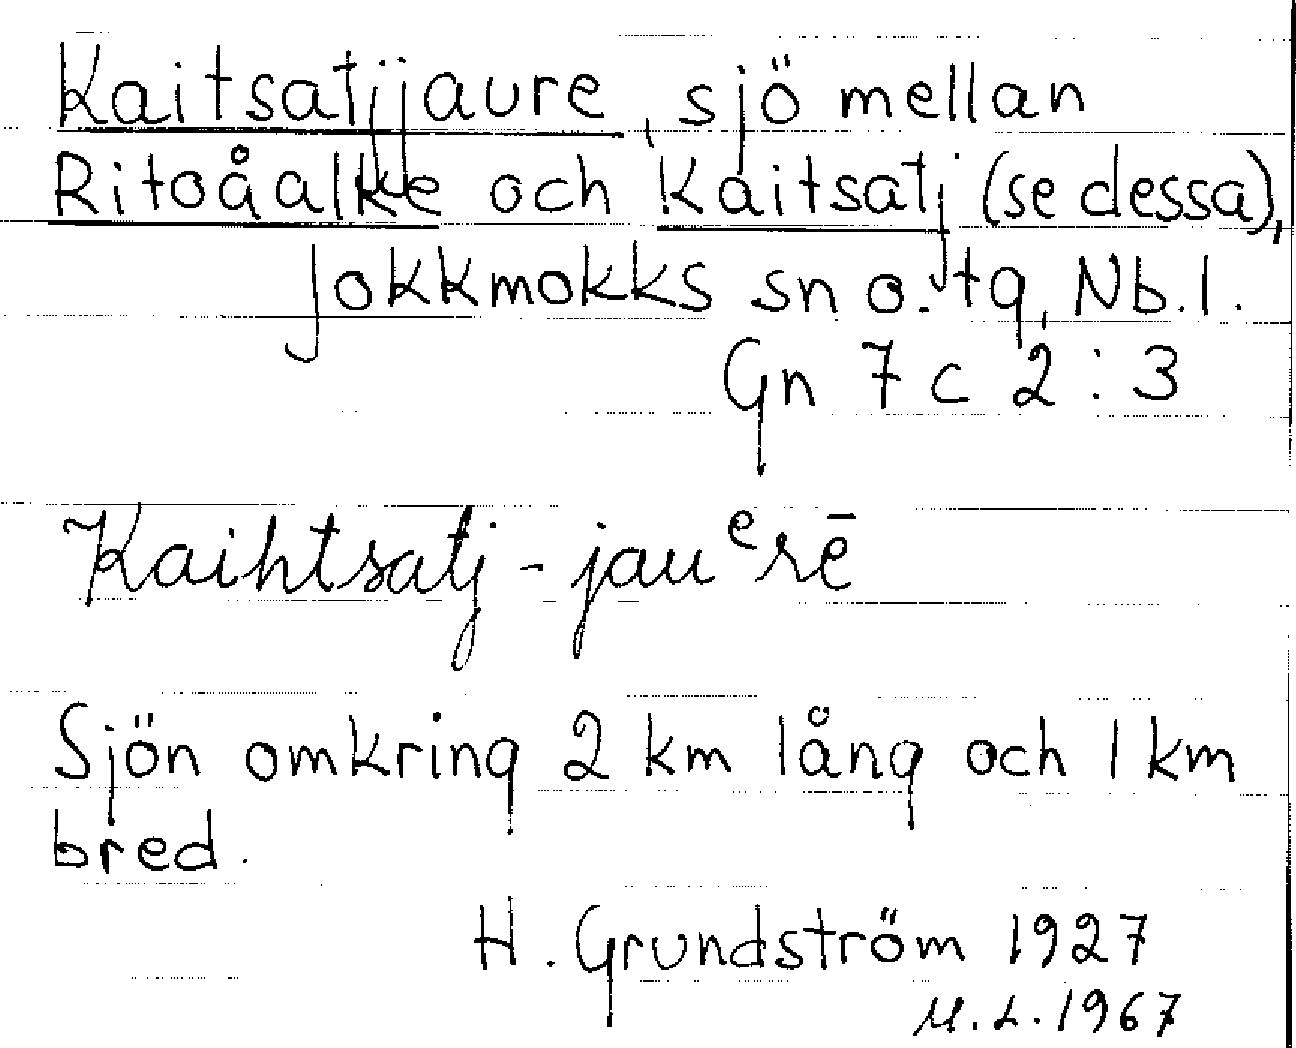 Kaitsatjjaure, sjö mellan
Ritoåalke och Kaitsatj (se dessa),
Jokkmokks sn o. tg, Nb. l.
Gn 7 c 2 : 3
Kaihtsatj - jauᵉrē
Sjön omkring 2 km lång och 1 km
bred.
H. Grundström 1927
M. L. 1967